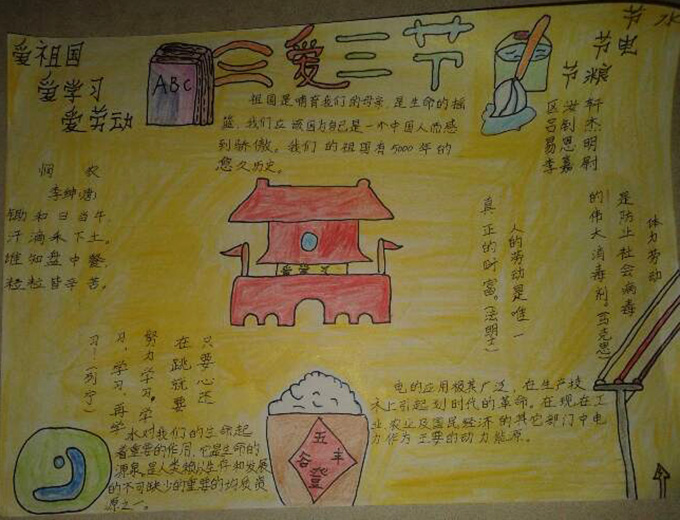 爱祖国
爱学习
爱劳动
ABC
三爱三节
节水
节电
节粮
区汝轩
吕创杰
易思明
李嘉尉
祖国是哺育我们的母亲，是生命的摇
篮，我们应该因为自己是一个中国人而感
到骄傲。我们的祖国有5000年的
悠久历史。
悯农
李绅(唐)
锄和日当午，
汗滴禾下土。
谁知盘中餐，
粒粒皆辛苦。
体力劳动
是防止社会病毒
的伟大消毒剂。(马克思)
人的劳动是唯一
真正的财富。(法朗士)
只要心还
在跳就要
努力学习。学
习，学习，再学
习！(列宁)
水对我们的生命起
着重要的作用，它是生命的
源泉，是人类赖以生存和发展
的不可缺少的重要的物质资
源之一。
五谷丰登
电的应用极其广泛，在生产技
术上引起划时代的革命。在现在工
业、农业及国民经济的其它部门中电
力作为主要的动力能源。